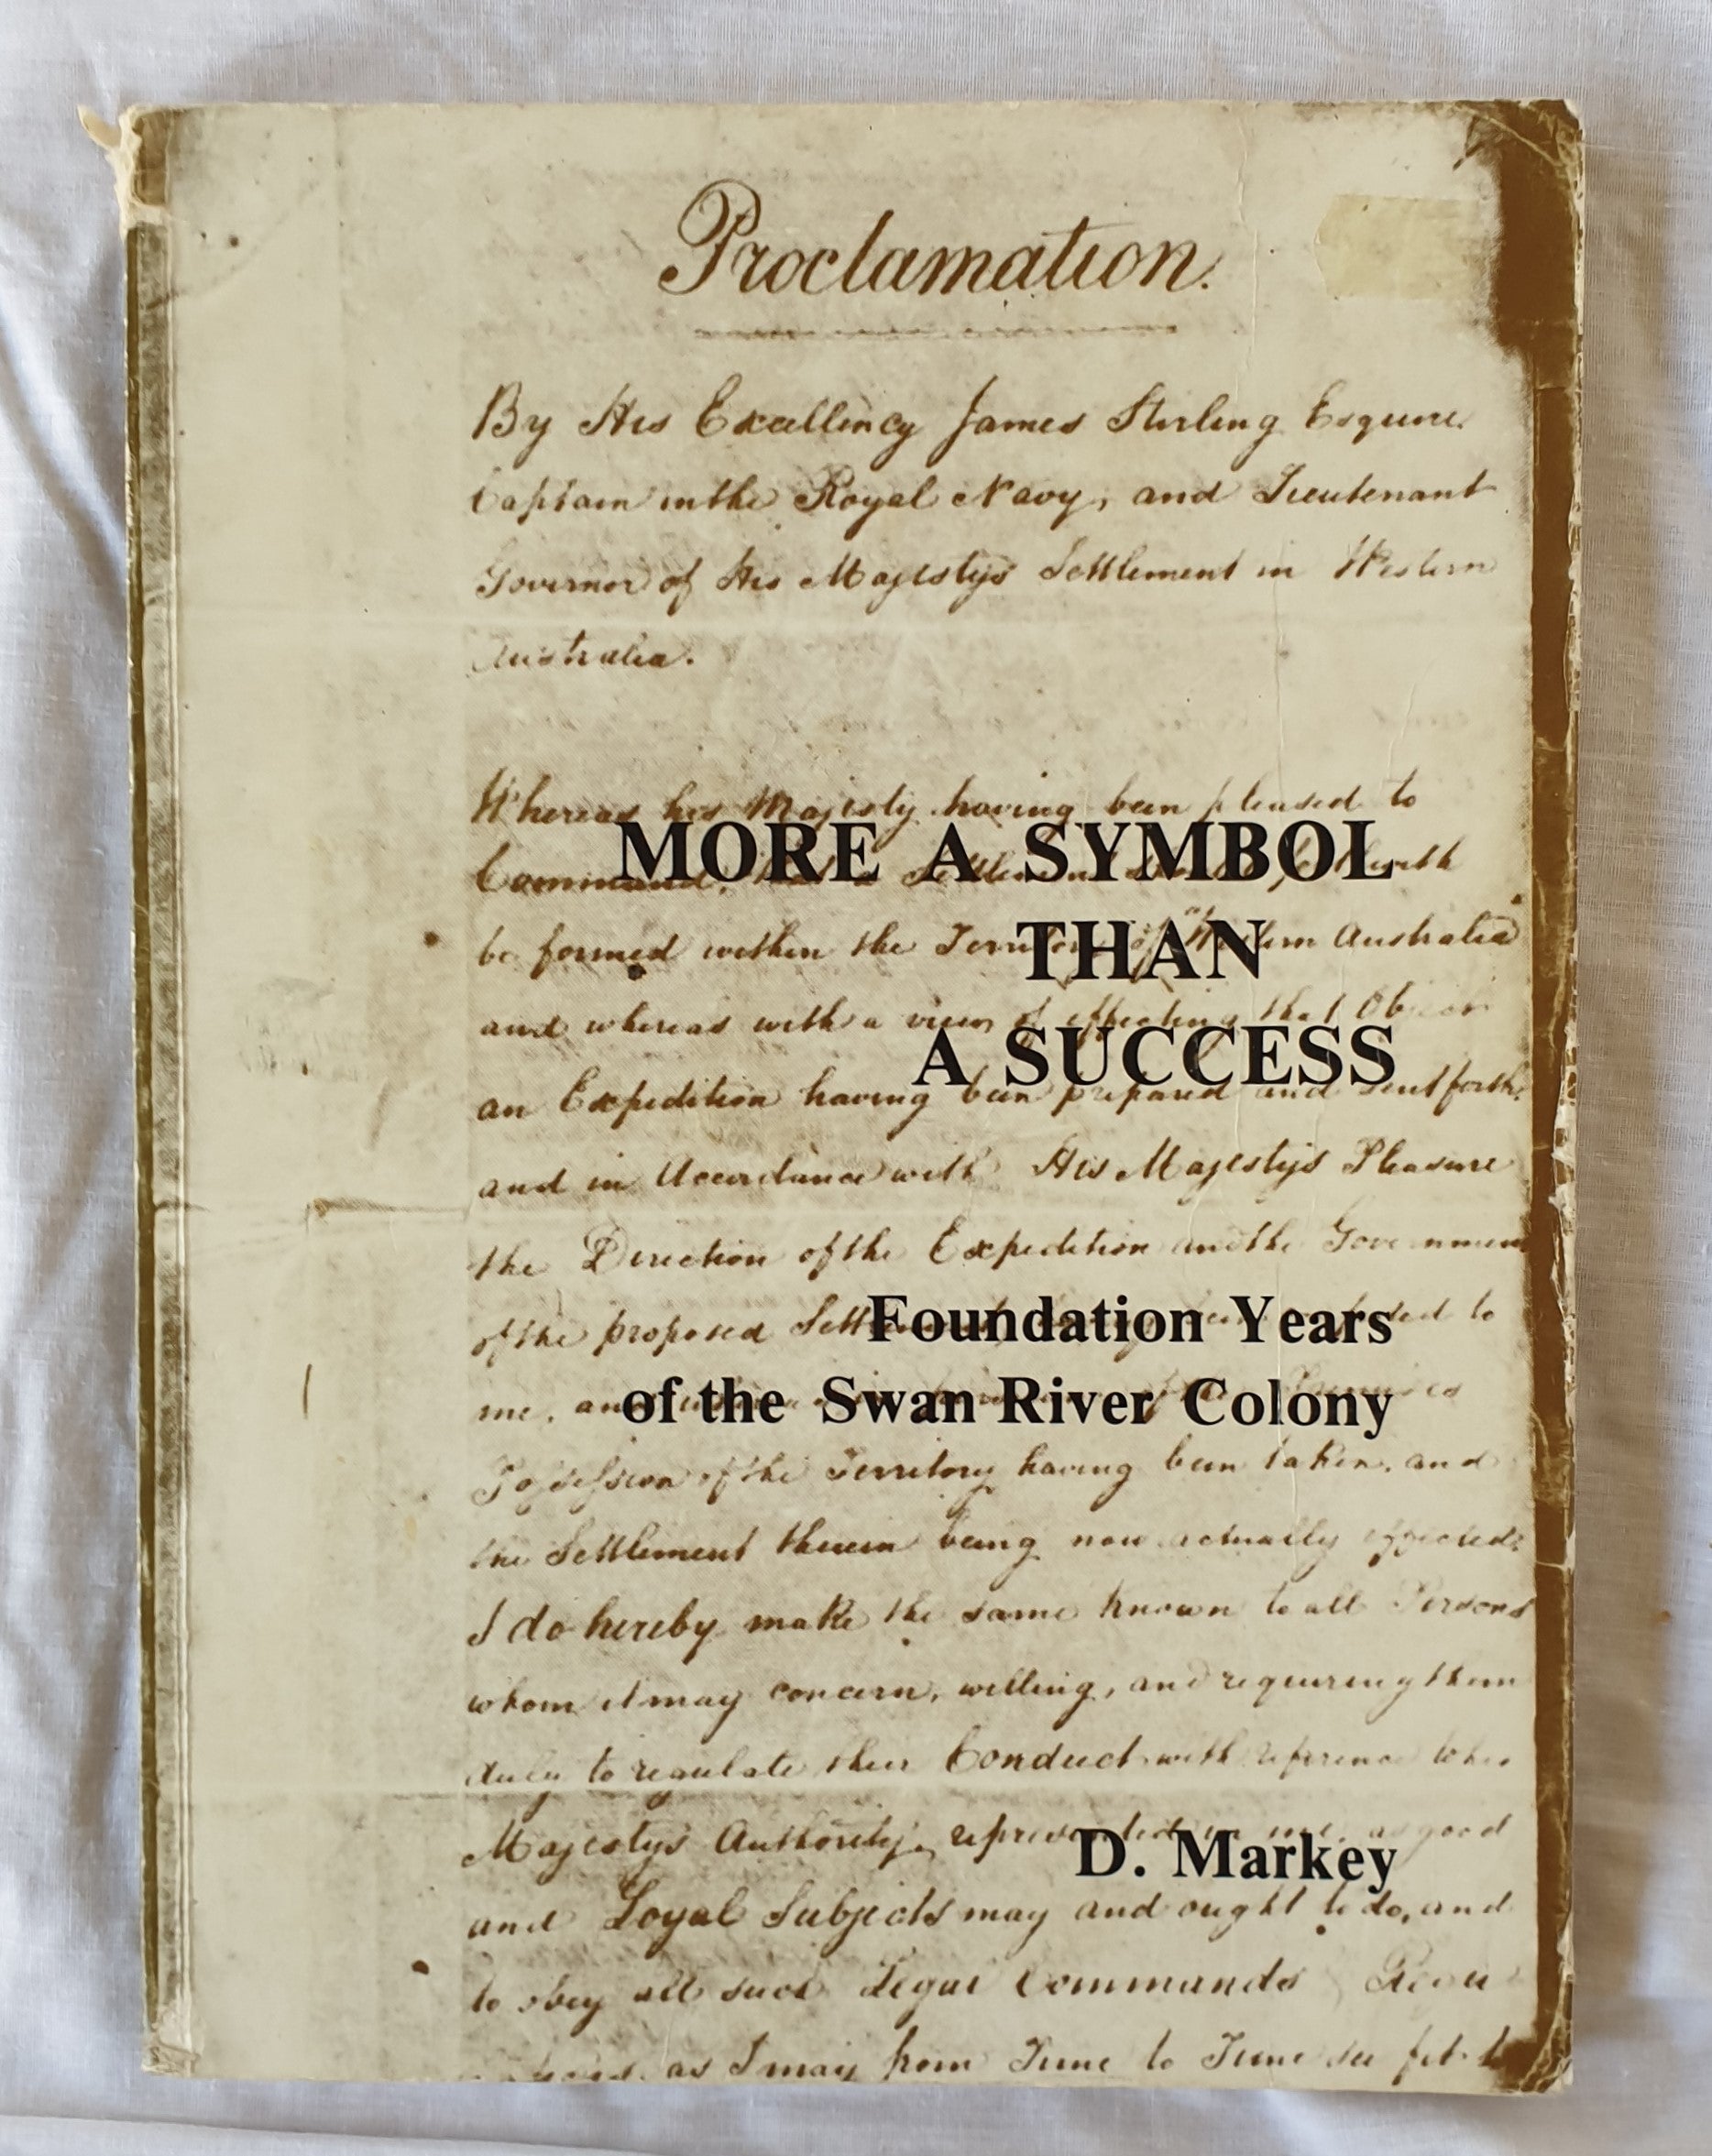 Proclamation.
By His Excellency James Stirling Esquire
Captain in the Royal Navy, and Lieutenant
Governor of His Majestys Settlement in Western
Australia.
Whereas his Majesty having been pleased to
Command, forthwith
be formed within the Territory of Western Australia
and whereas with a view of effecting that Object
an Expedition having been prepared and sent forth
and in Accordance with His Majestys Pleasure
the Direction of the Expedition and the Government
of the proposed to
me, and
Possession of the Territory having been taken, and
the Settlement therein being now actually effected;
I do hereby make the same known to all Persons
whom it may concern, willing, and requiring them
duly to regulate their Conduct with reference to his
Majestys Authority, represented in me, as good
and Loyal Subjects may and ought to do, and
to obey all such Legal Commands
as I may from Time to Time see fit to
MORE A SYMBOL
THAN
A SUCCESS
Foundation Years
of the Swan River Colony
D. Markey